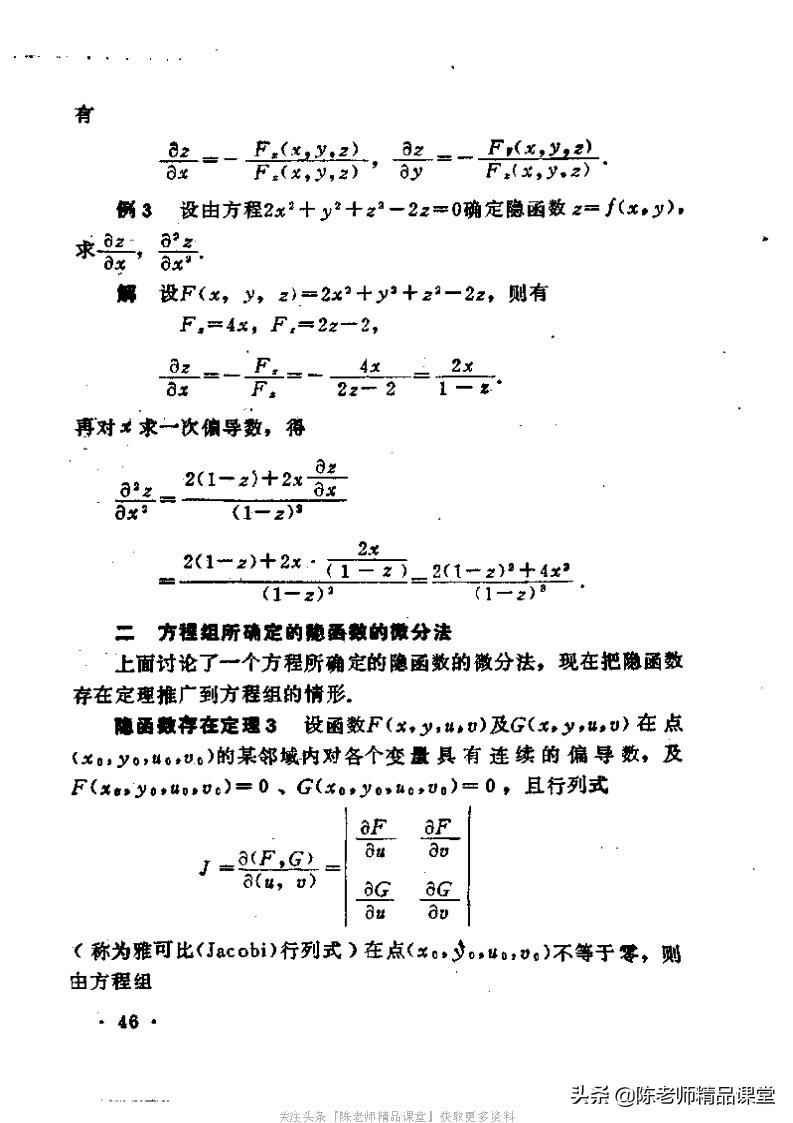 有
∂z/∂x=－F_x(x,y,z)/F_z(x,y,z)，∂z/∂y=－F_y(x,y,z)/F_z(x,y,z)．
例3　设由方程2x²＋y²＋z²－2z＝0确定隐函数z＝f(x，y)，
求∂z/∂x，∂²z/∂x²．
解　设F(x，y，z)＝2x²＋y²＋z²－2z，则有
F_x＝4x，F_z＝2z－2，
∂z/∂x＝－F_x/F_z＝－4x/(2z－2)＝2x/(1－z)．
再对x求一次偏导数，得
∂²z/∂x²＝(2(1－z)＋2x ∂z/∂x)/(1－z)²
＝(2(1－z)＋2x·2x/(1－z))/(1－z)²＝(2(1－z)²＋4x²)/(1－z)³．
二　方程组所确定的隐函数的微分法
上面讨论了一个方程所确定的隐函数的微分法，现在把隐函数
存在定理推广到方程组的情形．
隐函数存在定理3　设函数F(x，y，u，v)及G(x，y，u，v)在点
(x₀，y₀，u₀，v₀)的某邻域内对各个变量具有连续的偏导数，及
F(x₀，y₀，u₀，v₀)＝0、G(x₀，y₀，u₀，v₀)＝0，且行列式
J＝∂(F,G)/∂(u，v)＝|∂F/∂u　∂F/∂v
∂G/∂u　∂G/∂v|
（称为雅可比(Jacobi)行列式）在点(x₀，y₀，u₀，v₀)不等于零，则
由方程组
·46·
头条 @陈老师精品课堂
关注头条「陈老师精品课堂」获取更多资料